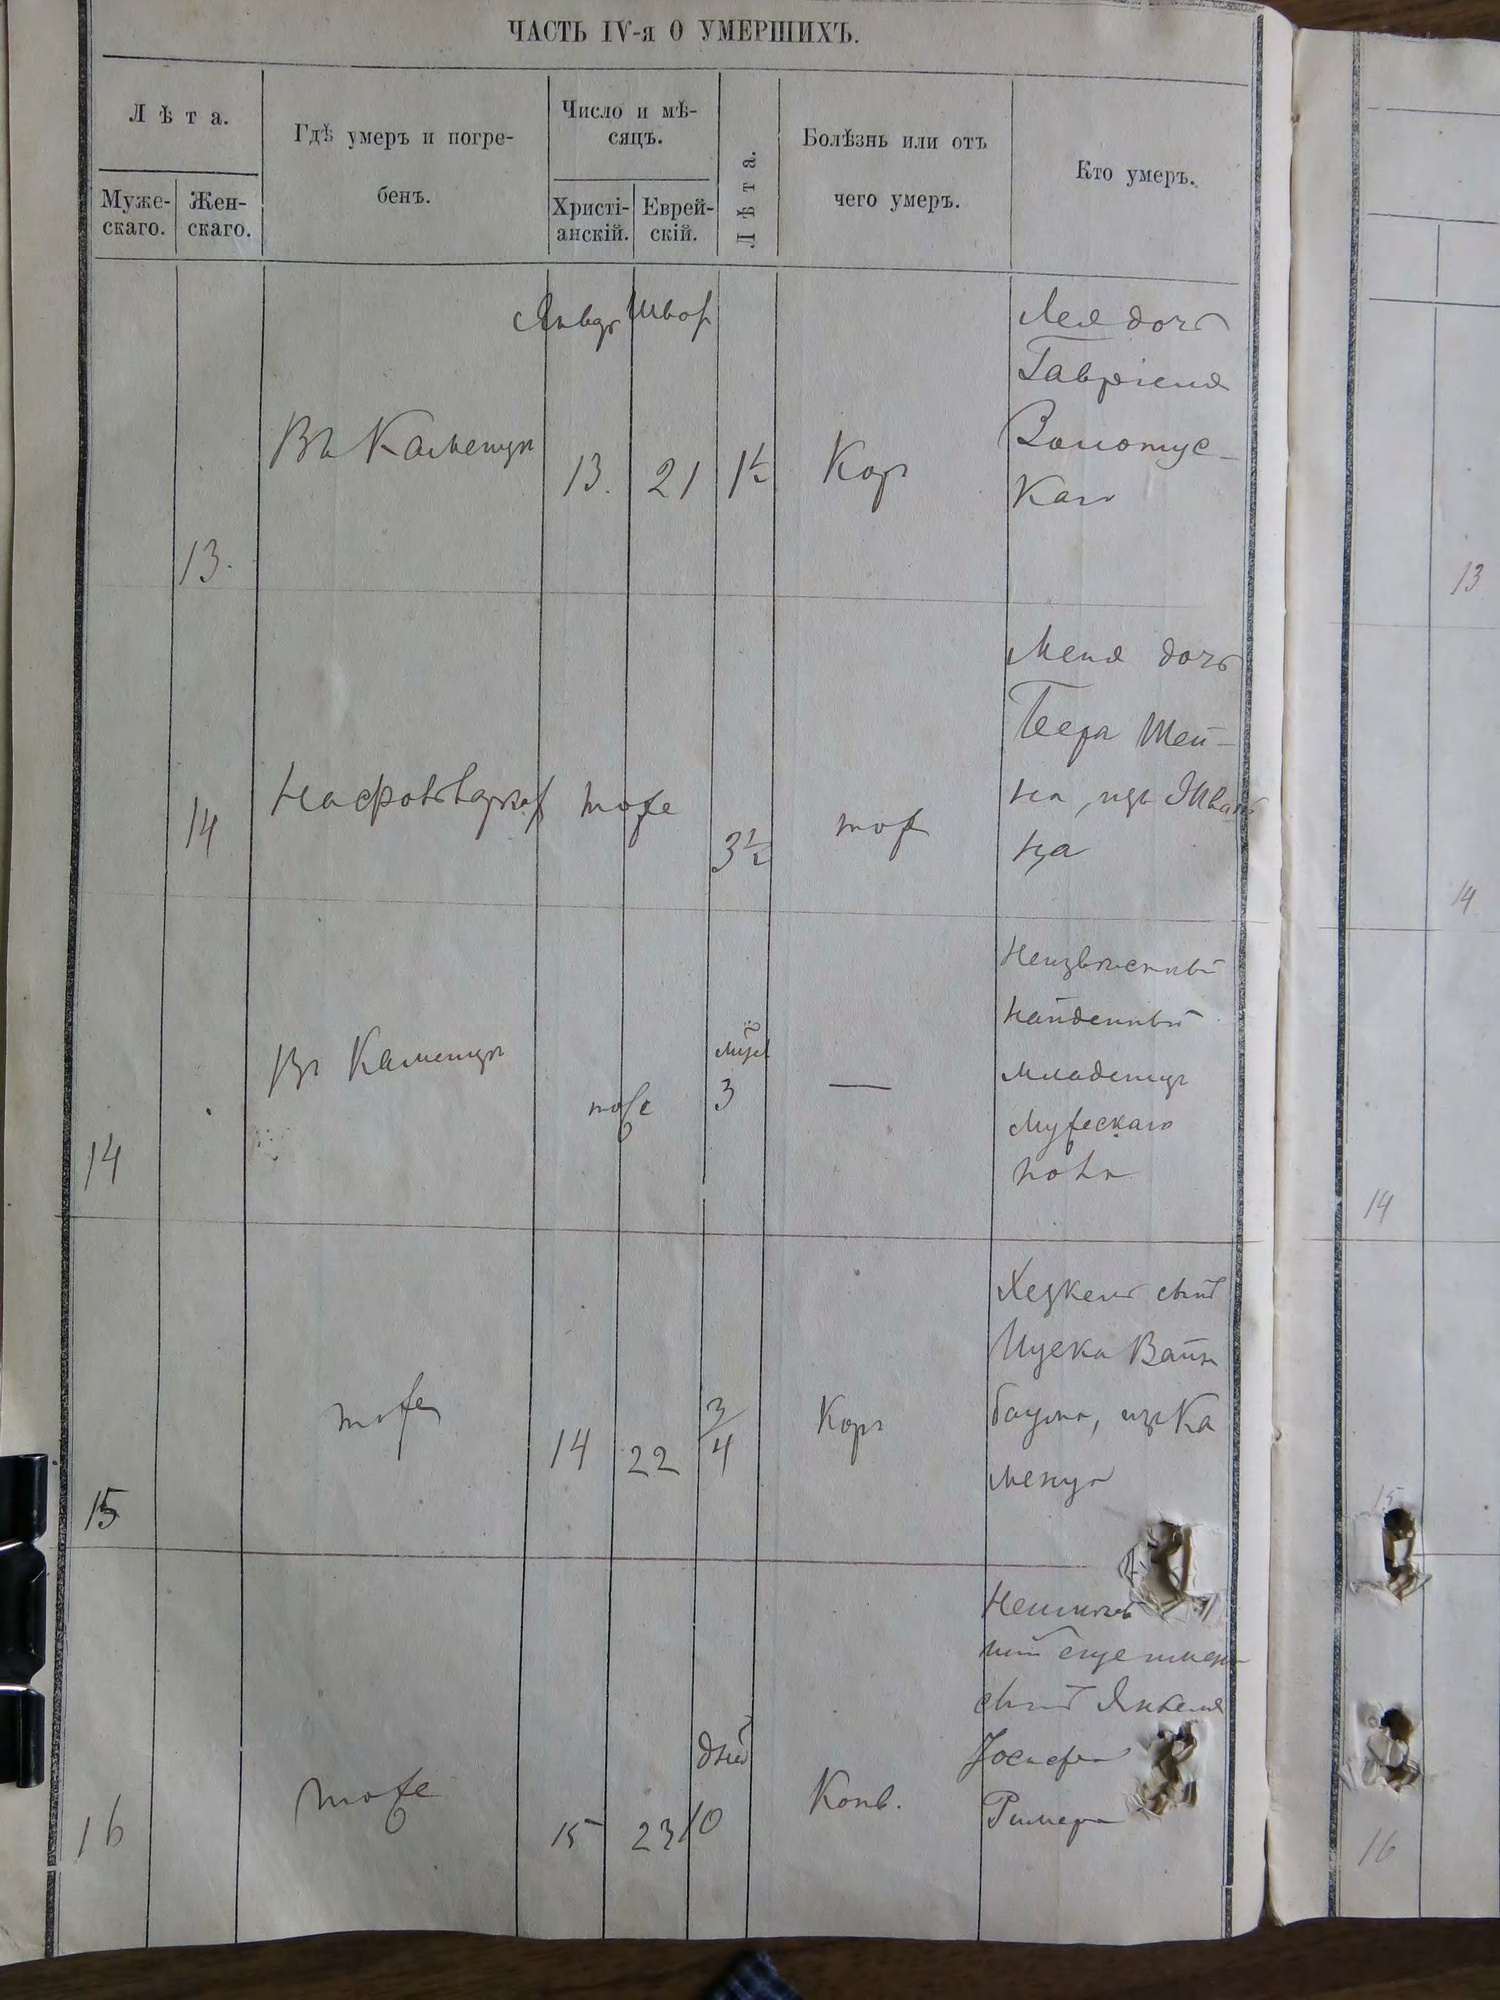 ЧАСТЬ IV-я О УМЕРШИХЪ.
Лѣта.
Муже-
скаго.
Жен-
скаго.
Гдѣ умеръ и погре-
бенъ.
Число и мѣ-
сяцъ.
Христі-
анскій.
Еврей-
скій.
Лѣта.
Болѣзнь или отъ
чего умеръ.
Кто умеръ.
13.
Въ Каменцѣ
Январ
Швот
13.
21
1½
Кор
Лея дочь
Гавріеля
Золотус-
каго
13
14
тоже
3½
тож
Меня дочь
Бера Штей-
на, изъ Жван
ца
14
14
Въ Каменцѣ
тоже
3
—
Неизвѣстный
найденный
младенец
мужескаго
пола
14
15
тоже
14
22
3/4
Корь
Хезкель сынъ
Ицека Вайн
баума, изъ Ка
менца
15
16
тоже
15
23
дней
10
Конв.
еще имени
сынъ Янкеля
Іосифа
Римера
16